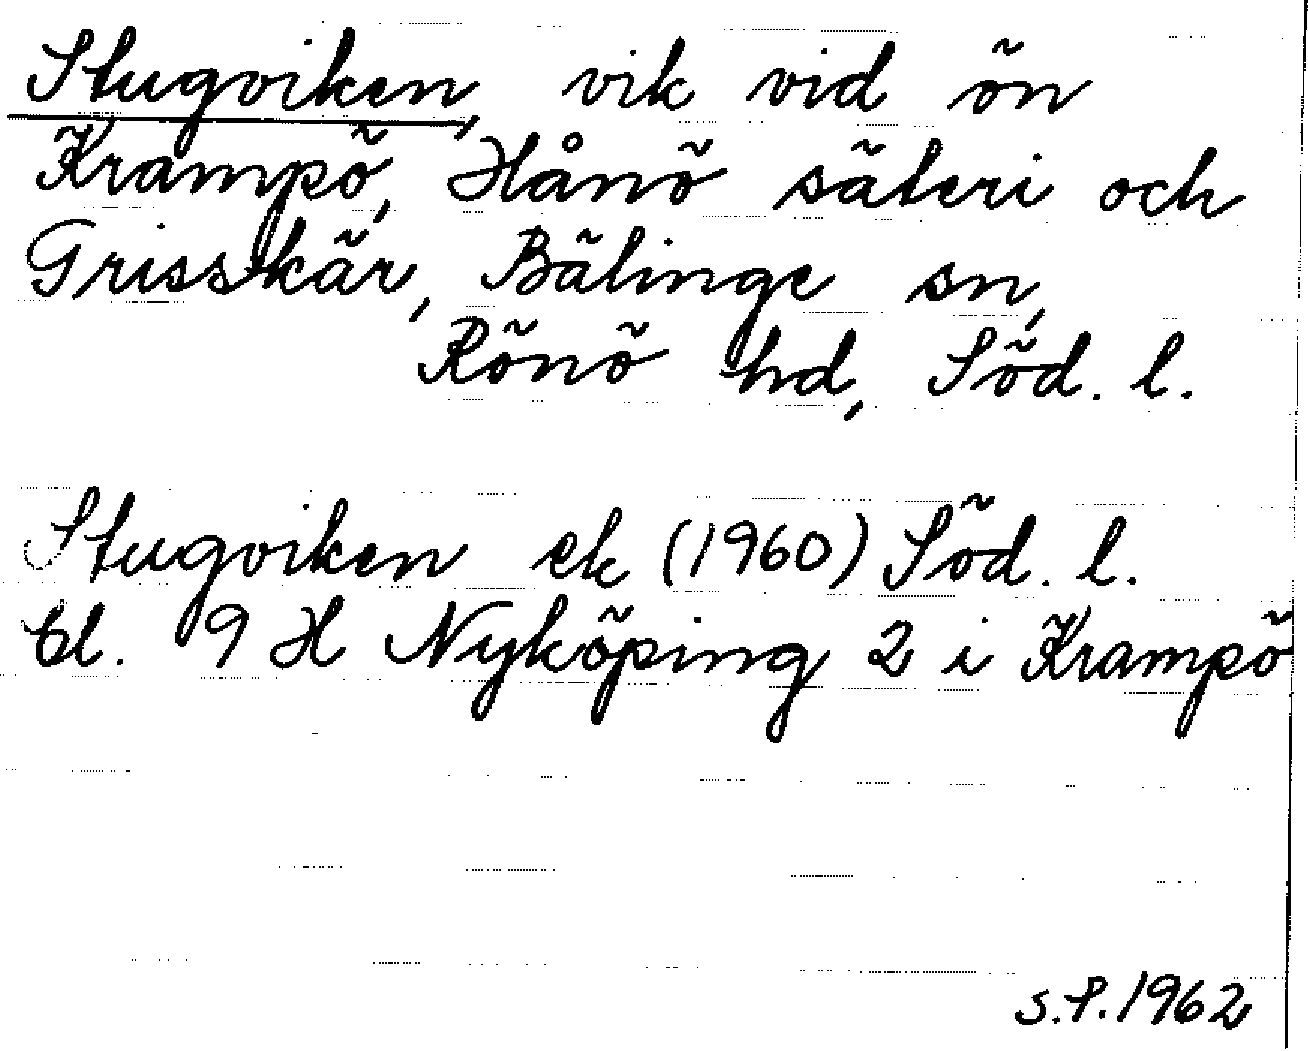 Stugviken, vik vid ön
Krampö, Hånö säteri och
Grisskär, Bälinge sn,
Rönö hd, Söd. l.
Stugviken ek (1960) Söd. l.
bl. 9 H Nyköping 2 i Krampö
S.P. 1962